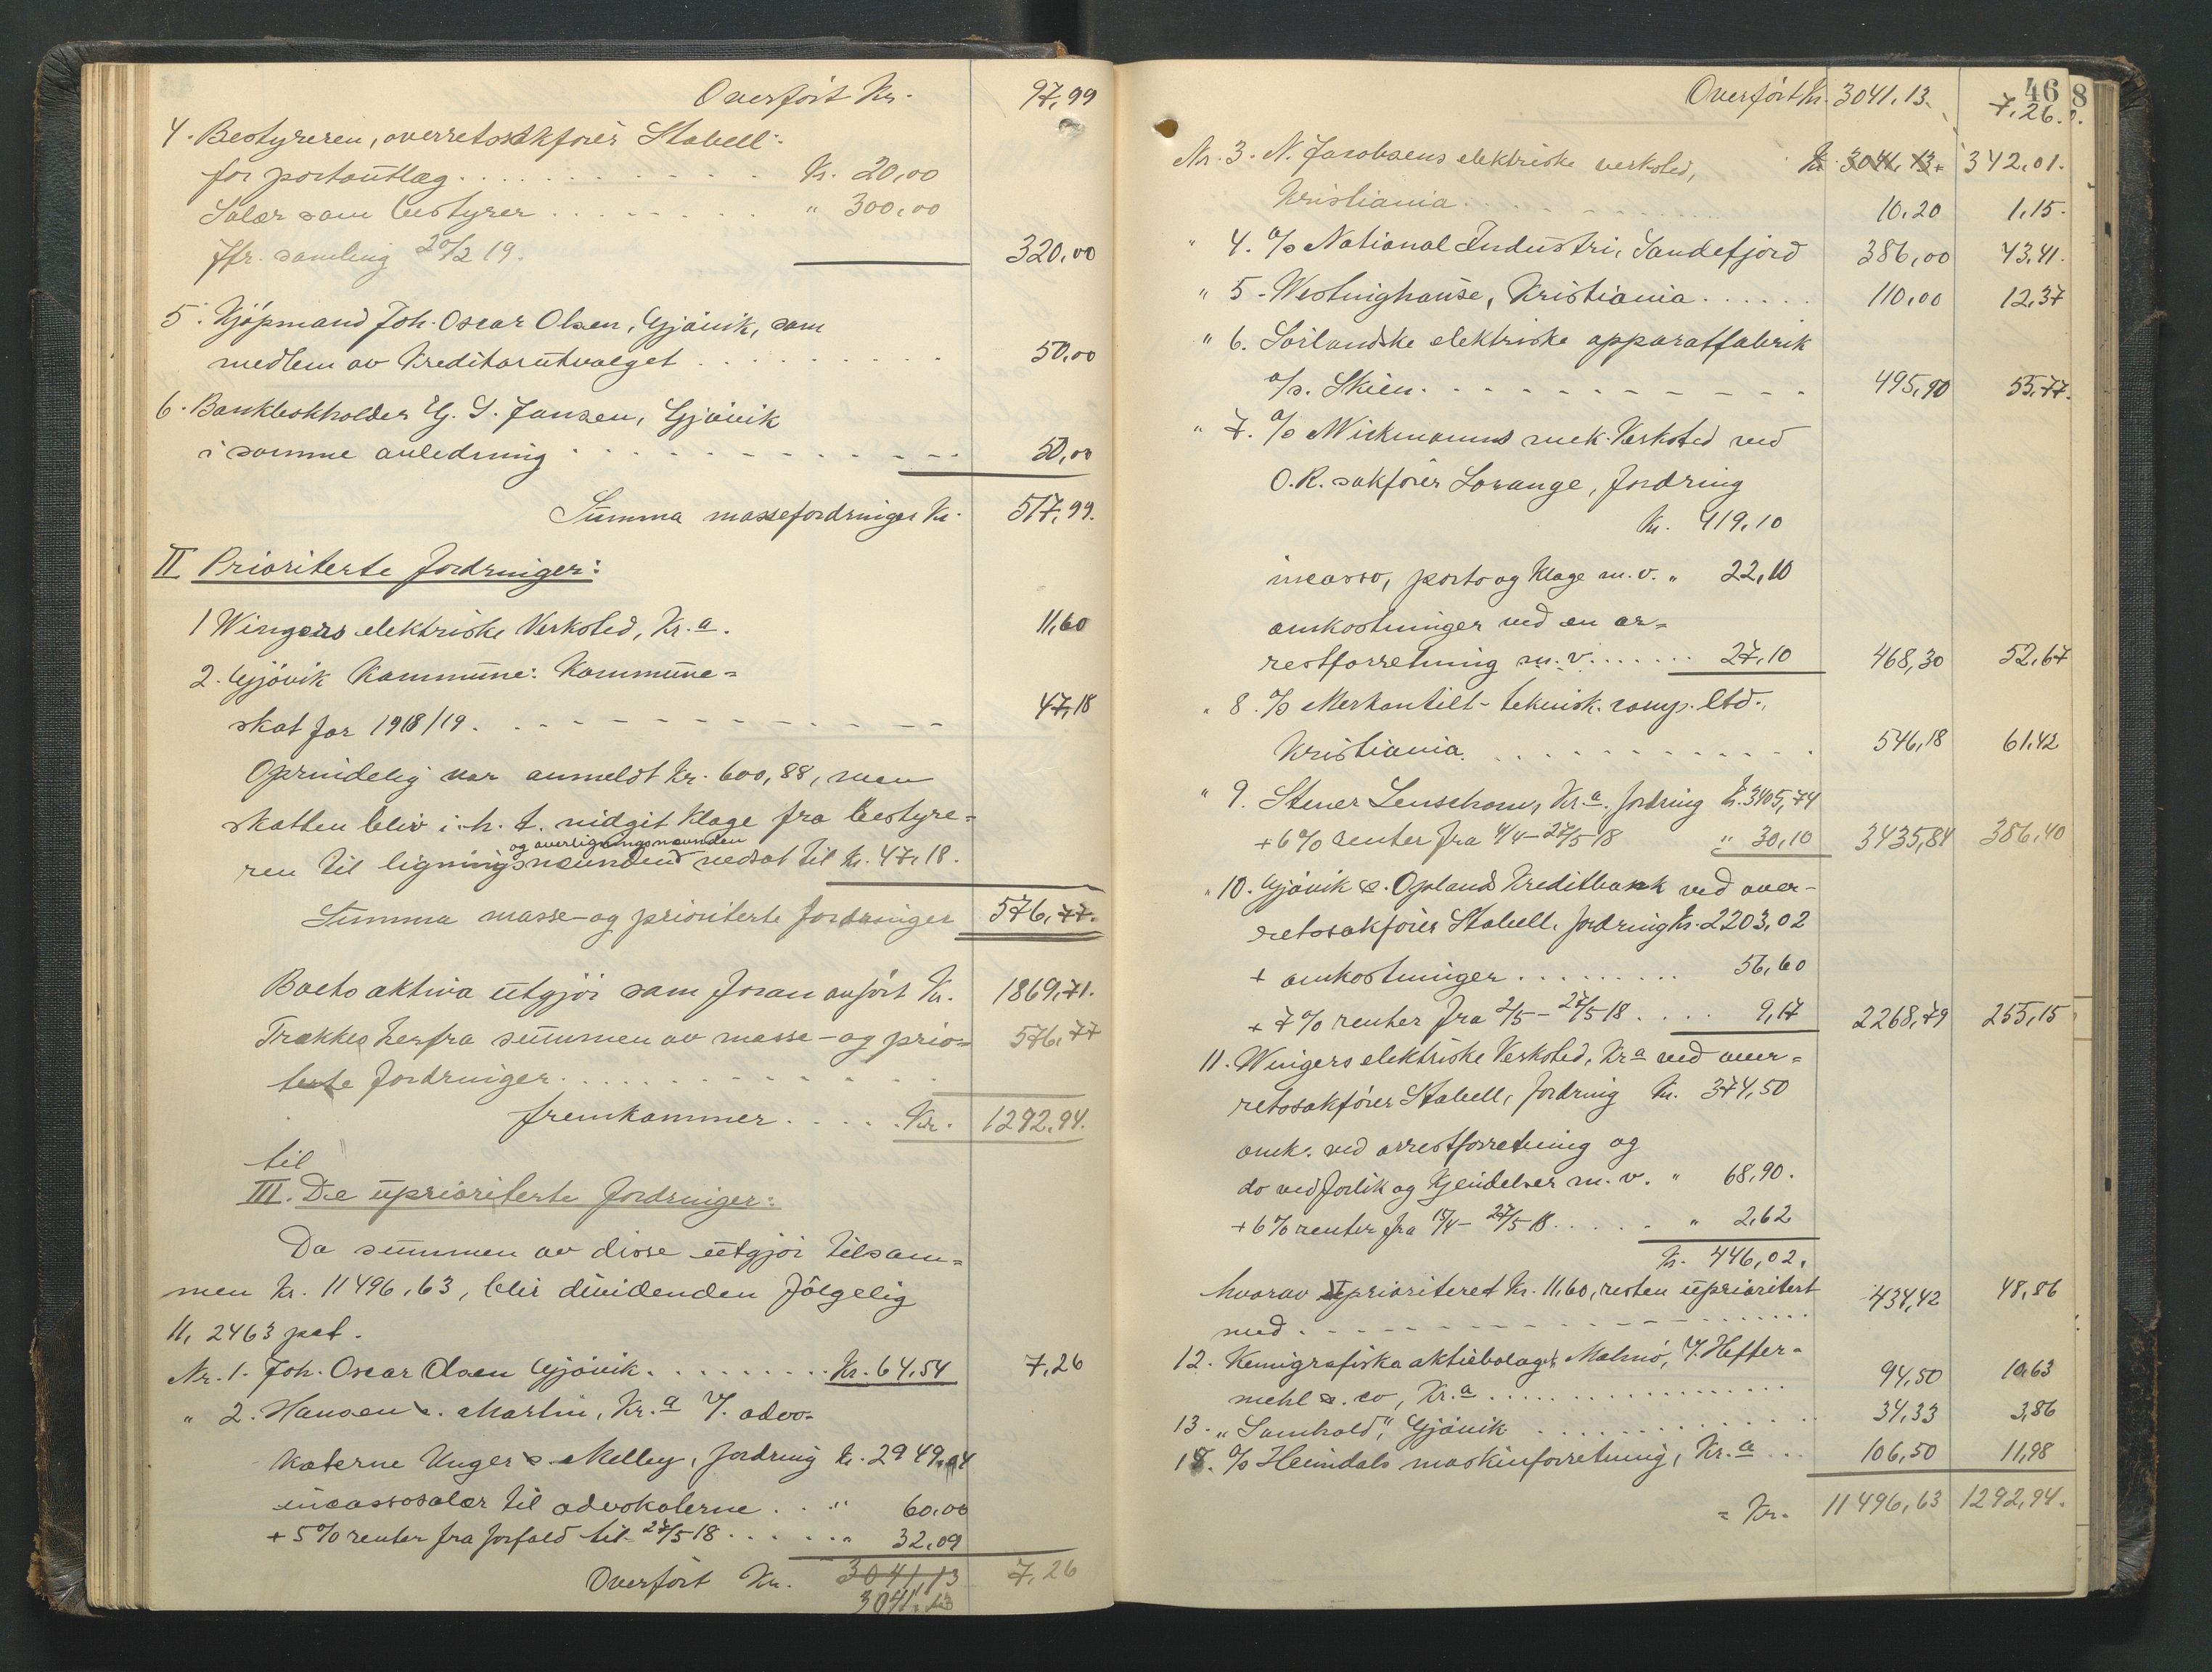 Overført Kr. 97,99
4. Bestyreren, overretssakfører Stabell:
for portoutlæg . . . . . . . . . . . Kr. 20,00
Salær som bestyrer . . . . . . . . " 300,00
Jfr. samling 20/2 19. 320,00
5. Kjøpmand Joh. Oscar Olsen, Gjøvik, som
medlem av kreditorutvalget . . . . . . . . . 50,00
6. Bankbokholder G. S. Jansen, Gjøvik
i samme anledning . . . . . . . . . . . 50,00
Summa massefordringer Kr. 517,99.
II Prioriterte fordringer:
1 Wingers elektriske Verksted, Kr.a. 11,60
2. Gjøvik Kommune: Kommune=
skat for 1918/19. . . . . . . . . . . . . . 47,18
Oprindelig var anmeldt Kr. 600,88, men
skatten blev i h. t. nidgit klage fra bestyre=
og overligningsnævnden
ren til ligningsnævnden nedsat til Kr. 47,18.
Summa masse- og prioriterte fordringer 576,77.
Boets aktiva utgjør som foran anført Kr. 1869,71.
Trækkes herfra summen av masse- og prio= 576,77
terte fordringer . . . . . . . . . . . .
fremkommer . . . . . Kr. 1292,94.
til
III. De uprioriterte fordringer:
Da summen av disse utgjør tilsam=
men Kr. 11496,63, blir dividenden følgelig
11,2463 pct.
Nr. 1. Joh. Oscar Olsen Gjøvik . . . . . . . . . Kr. 64,54 7,26
" 2. Hansen &. Martin, Kr.a V. advo-
katerne Unger &. Melley, fordring Kr. 2949,04
incassosalær til advokaterne . . . " 60,00
+ 5% renter fra forfald til 27/5 18 . . . . . " 32,09
Overført Kr. 3041,13 7,26
3041,13
46
8
Overført Kr. 3041,13. 7,26.
Nr. 3. N. Jacobsens elektriske verksted, Kr. 3041,13. 342,01.
Kristiania . . . . . . . . . . . . . 10,20 1,15.
" 4. A/S National Industri, Sandefjord 386,00 43,41.
" 5. Westinghouse, Kristiania . . . . . . 110,00 12,37
" 6. Sørlandske elektriske apparatfabrik
a/s. Skien . . . . . . . . . . . . . . 495,90 55,77.
" 7. A/S Wickmanns mek. Verksted ved
O.R. sakfører Lorange, fordring
Kr. 419,10
incasso, porto og klage m. v. " 22,10
omkostninger ved en ar=
restforretning m. v. . . . . . . 27,10 468,30 52,67
" 8. A/S Merkantilt-teknisk. comp. Ltd.,
Kristiania . . . . . . . . . . . . . 546,18 61,42
" 9. Stener Lenschow, Kr.a. fordring Kr. 3405,74
+ 6% renter fra 4/4-27/5 18 " 30,10 3435,84 386,40
" 10. Gjøvik &. Opland Kreditbank ved over-
retssakfører Stabell, fordring Kr. 2203,02
+ omkostninger . . . . . . . . . 56,60
+ 7% renter fra 2/5-27/5 18 . . . . 9,17 2268,79 255,15
11. Wingers elektriske Verksted, Kr.a ved over=
retssakfører Stabell, fordring Kr. 374,50
omk. ved arrestforretning og
do ved forlik og kjendelser m. v. " 68,90.
+ 6% renter fra 15/4- 27/5 18 . . . . . " 2,62
Kr. 446,02.
hvorav prioriteret Kr. 11,60, resten uprioritert 434,42 48,86
med . . . . . . . . . . . . . . . . . .
12. Kemigrafiska aktiebolaget Malmø, V. Heffer-
mehl &. co, Kr.a . . . . . . . . . . . . . . 94,50 10,63
13. "Samhold", Gjøvik . . . . . . . . . . 34,33 3,86
15. A/S Heimdals maskinforretning, Kr.a . . . 106,50 11,98
= Kr. 11496,63 1292,94.